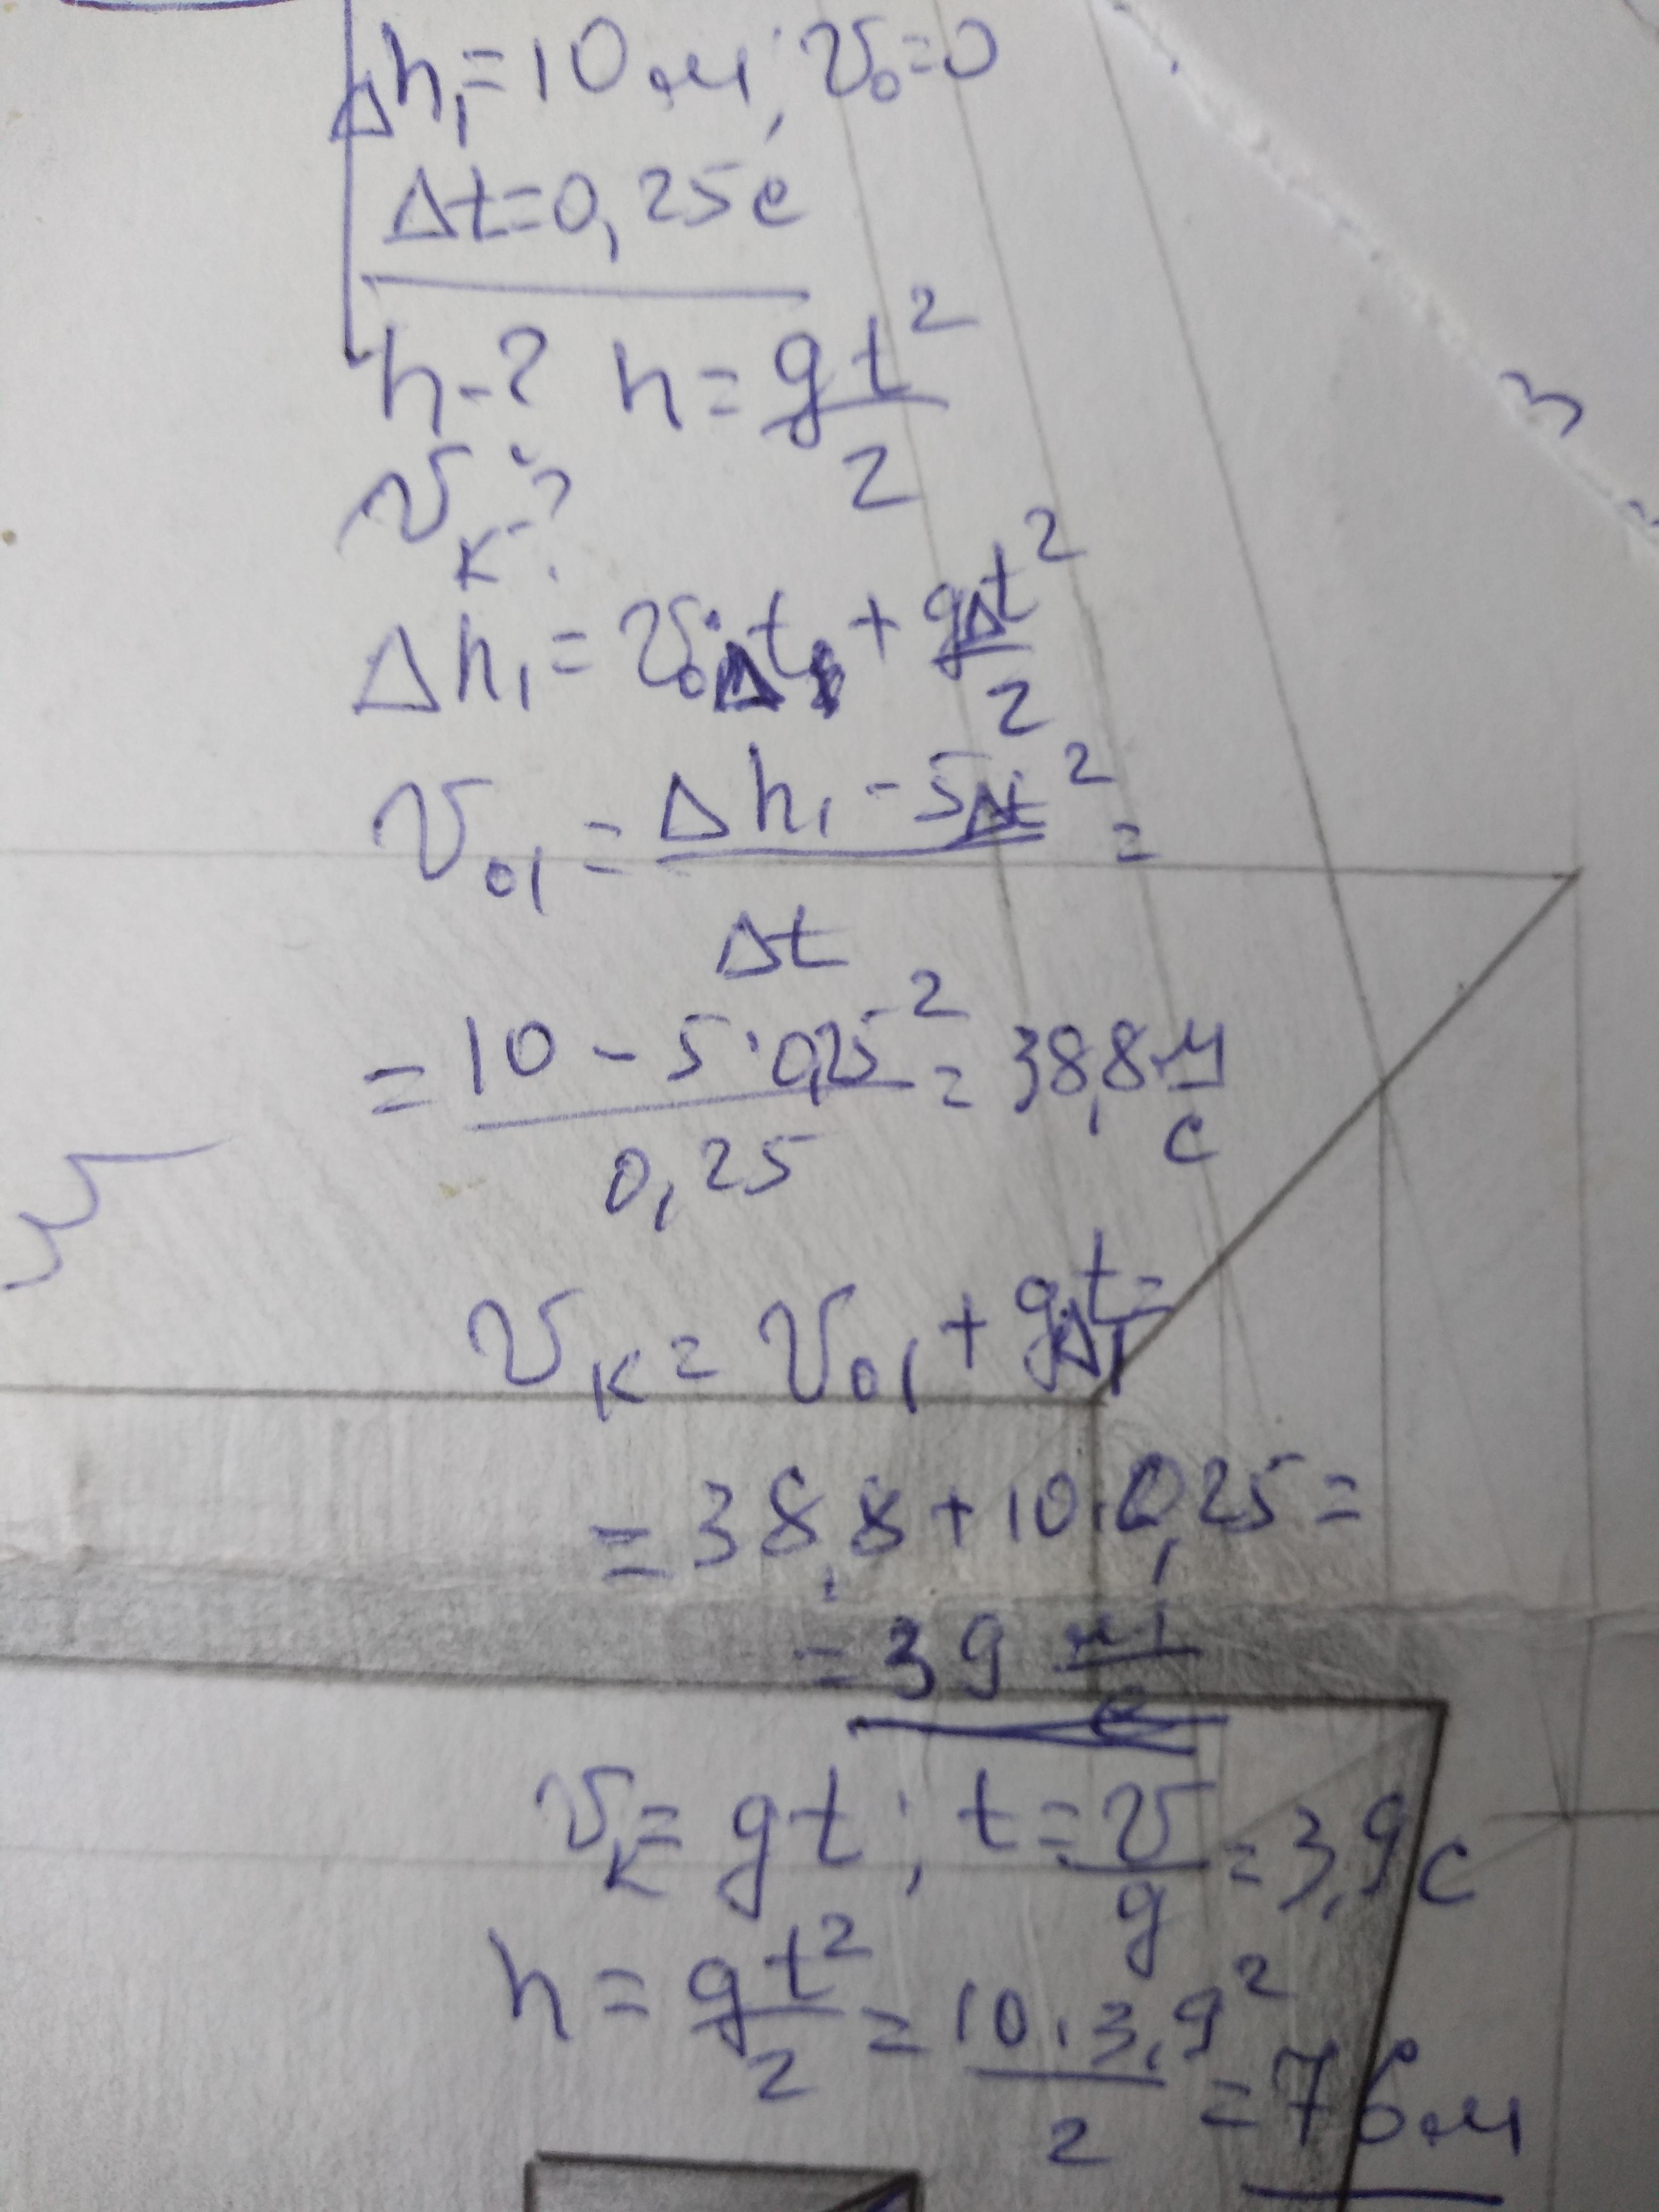 Δh₁=10м; v₀=0
Δt=0,25с
h-? h=gt²/2
vк-?
Δh₁=v₀·Δt+gΔt²/2
v₀₁=(Δh₁-5Δt²)/Δt=
=(10-5·0,25²)/0,25=38,8м/с
vк=v₀₁+gΔt=
=38,8+10·0,25=
=39м/с
vк=gt; t=v/g=3,9с
h=gt²/2=10·3,9²/2=76м